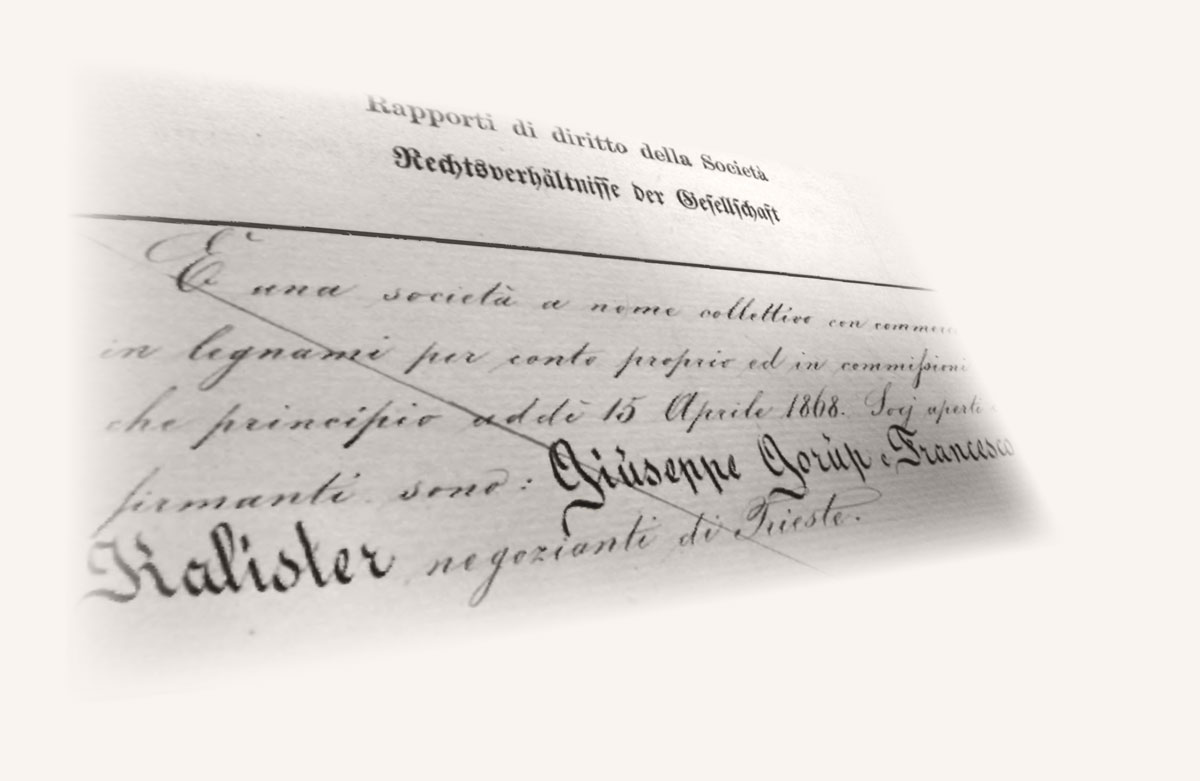 Rapporti di diritto della Società
Rechtsverhältnisse der Gesellschaft
È una società a nome collettivo con commerc
in legnami per conto proprio ed in commissioni
che principio addì 15 Aprile 1868. Socj aperti e
firmanti sono: Giuseppe Gorup e Francesco
Kalister negozianti di Trieste.